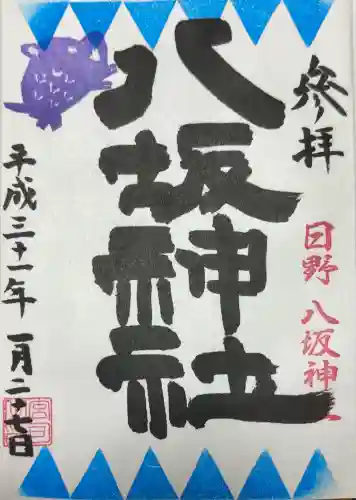 参拝
日野 八坂神社
八坂神社
平成三十一年 一月二十七日